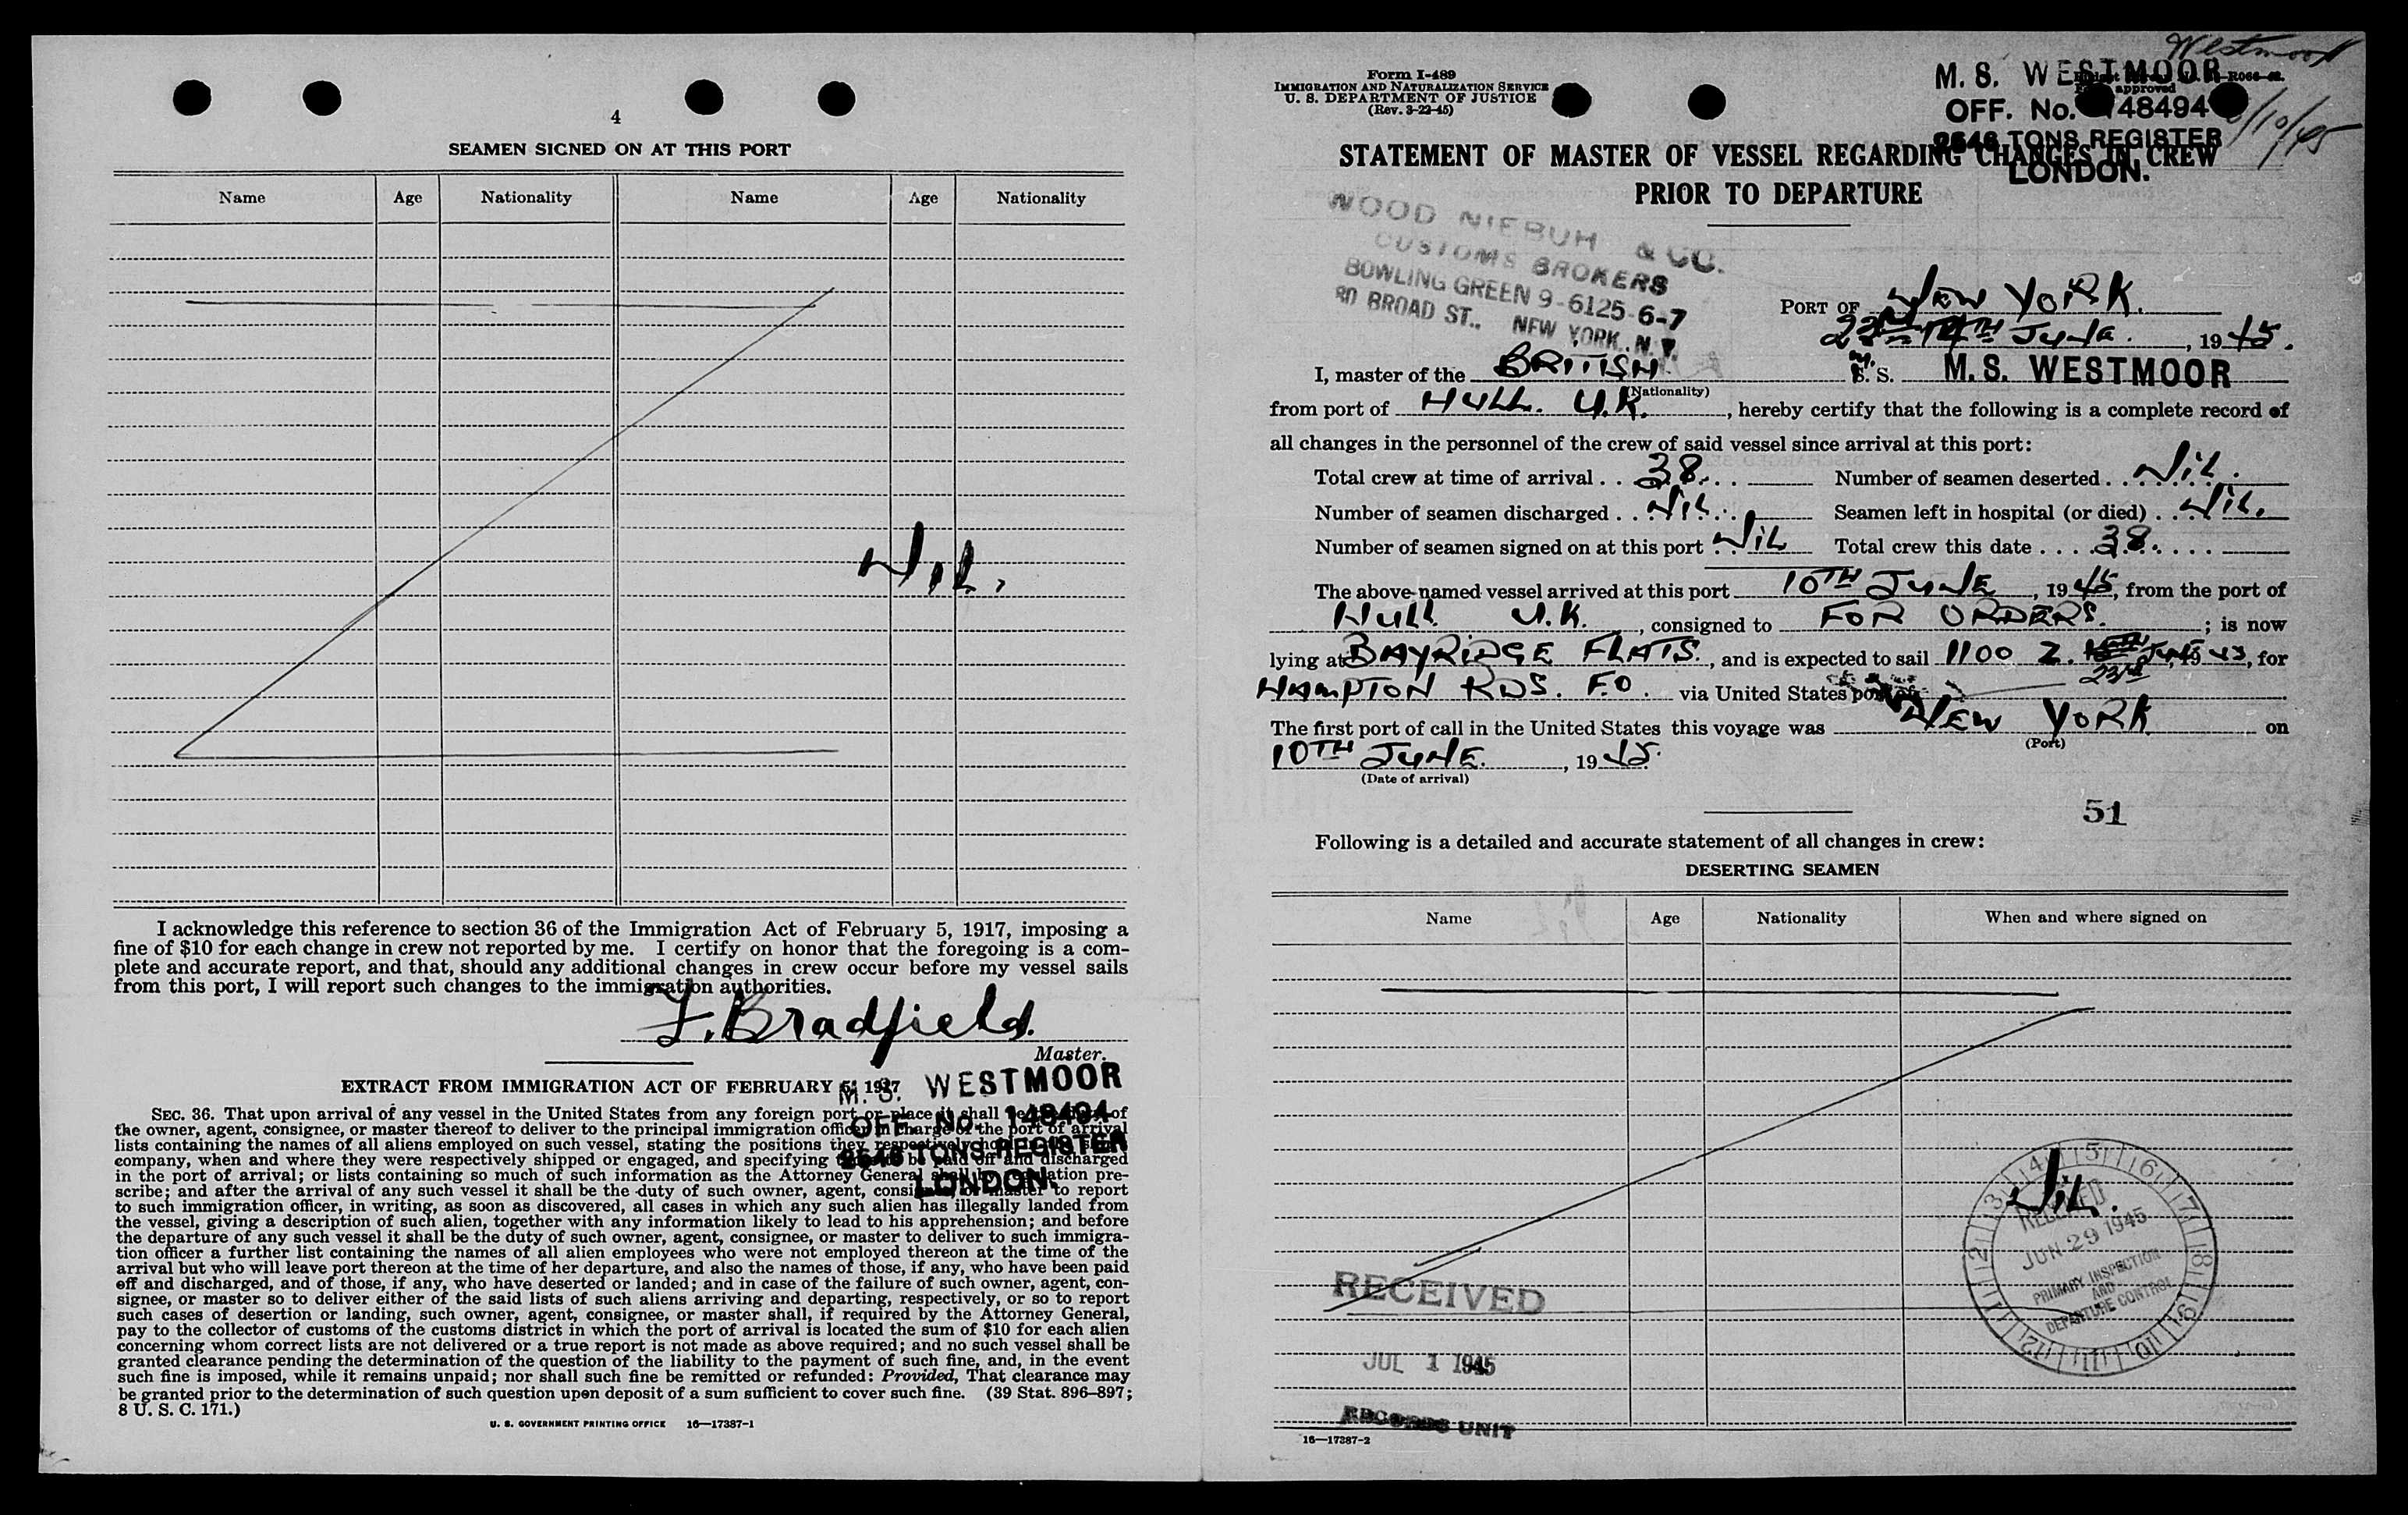 4
SEAMEN SIGNED ON AT THIS PORT
Name Age Nationality Name Age Nationality
Nil.
I acknowledge this reference to section 36 of the Immigration Act of February 5, 1917, imposing a
fine of $10 for each change in crew not reported by me. I certify on honor that the foregoing is a com-
plete and accurate report, and that, should any additional changes in crew occur before my vessel sails
from this port, I will report such changes to the immigration authorities.
F. Bradfield.
Master.
EXTRACT FROM IMMIGRATION ACT OF FEBRUARY 5, 1917
M. S. WESTMOOR
OFF. No. 148494
2646 TONS REGISTER
LONDON.
SEC. 36. That upon arrival of any vessel in the United States from any foreign port or place it shall be the duty of
the owner, agent, consignee, or master thereof to deliver to the principal immigration officer in charge of the port of arrival
lists containing the names of all aliens employed on such vessel, stating the positions they respectively
company, when and where they were respectively shipped or engaged, and specifying be paid off and discharged
in the port of arrival; or lists containing so much of such information as the Attorney General shall pre-
scribe; and after the arrival of any such vessel it shall be the duty of such owner, agent, consignee, or master to report
to such immigration officer, in writing, as soon as discovered, all cases in which any such alien has illegally landed from
the vessel, giving a description of such alien, together with any information likely to lead to his apprehension; and before
the departure of any such vessel it shall be the duty of such owner, agent, consignee, or master to deliver to such immigra-
tion officer a further list containing the names of all alien employees who were not employed thereon at the time of the
arrival but who will leave port thereon at the time of her departure, and also the names of those, if any, who have been paid
off and discharged, and of those, if any, who have deserted or landed; and in case of the failure of such owner, agent, con-
signee, or master so to deliver either of the said lists of such aliens arriving and departing, respectively, or so to report
such cases of desertion or landing, such owner, agent, consignee, or master shall, if required by the Attorney General,
pay to the collector of customs of the customs district in which the port of arrival is located the sum of $10 for each alien
concerning whom correct lists are not delivered or a true report is not made as above required; and no such vessel shall be
granted clearance pending the determination of the question of the liability to the payment of such fine, and, in the event
such fine is imposed, while it remains unpaid; nor shall such fine be remitted or refunded: Provided, That clearance may
be granted prior to the determination of such question upon deposit of a sum sufficient to cover such fine. (39 Stat. 896–897;
8 U. S. C. 171.)
U. S. GOVERNMENT PRINTING OFFICE 16—17387-1
Westmoor
Form I-489
IMMIGRATION AND NATURALIZATION SERVICE
U. S. DEPARTMENT OF JUSTICE
(Rev. 3-22-45)
M. S. WESTMOOR
approved
OFF. No. 148494
/10/45
2646 TONS REGISTER
LONDON.
STATEMENT OF MASTER OF VESSEL REGARDING CHANGES IN CREW
PRIOR TO DEPARTURE
WOOD NIEBUH & CO.
CUSTOMS BROKERS
BOWLING GREEN 9-6125-6-7
80 BROAD ST., NEW YORK, N. Y.
PORT OF NEW YORK.
22nd JUNE. , 1945.
I, master of the BRITISH M.S. M. S. WESTMOOR
(Nationality)
from port of HULL. U.K. , hereby certify that the following is a complete record of
all changes in the personnel of the crew of said vessel since arrival at this port:
Total crew at time of arrival . . 38. Number of seamen deserted . . Nil.
Number of seamen discharged . . Nil. Seamen left in hospital (or died) . . Nil.
Number of seamen signed on at this port . Nil Total crew this date . . . . 38.
The above-named vessel arrived at this port 10TH JUNE , 1945, from the port of
HULL U.K. , consigned to FOR ORDERS. ; is now
lying at BAYRIDGE FLATS. , and is expected to sail 1100 Z. 23rd JUNE, 1945, for
HAMPTON RDS. F.O. via United States
The first port of call in the United States this voyage was NEW YORK on
(Port)
10TH JUNE. , 1945.
(Date of arrival)
51
Following is a detailed and accurate statement of all changes in crew:
DESERTING SEAMEN
Name Age Nationality When and where signed on
Nil.
RECEIVED
JUN 29 1945
PRIMARY INSPECTION
AND
DEPARTURE CONTROL
1 2 3 4 5 6 7 8 9 10 11 12
RECEIVED
JUL 1 1945
RECORDS UNIT
16—17387-2